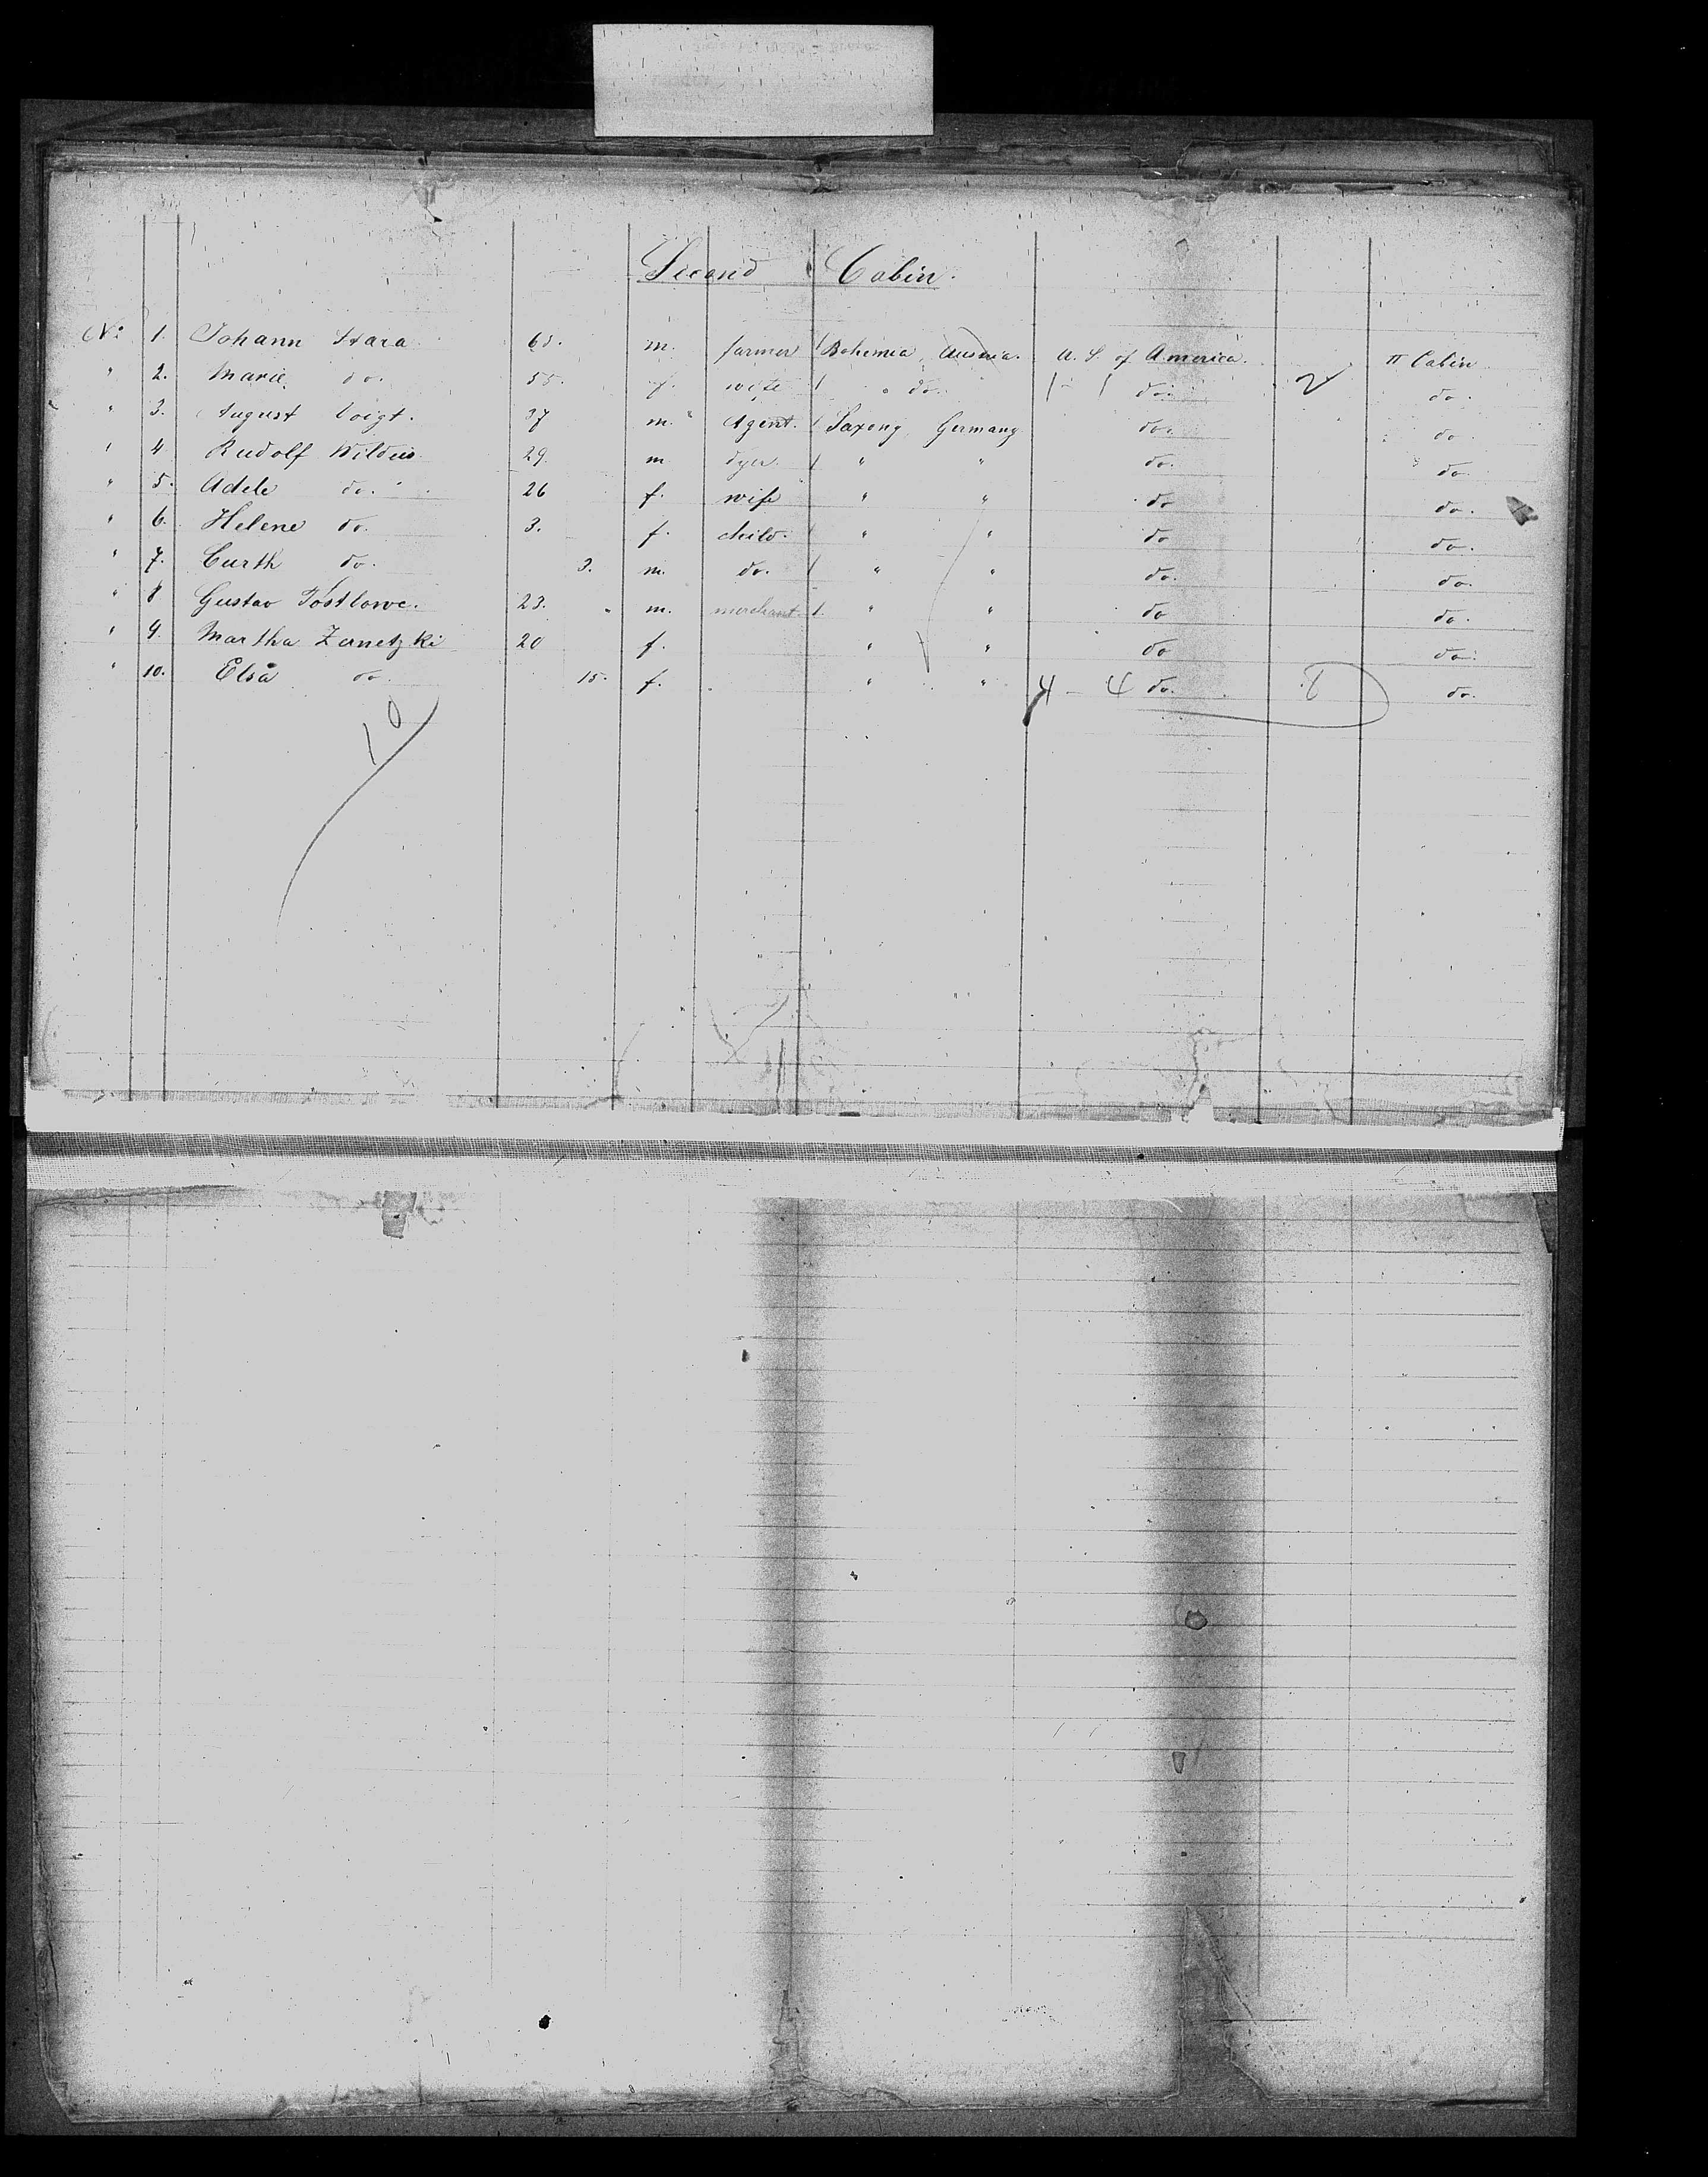 Second Cabin.
No. 1. Johann Hara 61. m. farmer Bohemia, Austria. U. S. of America. II Cabin
" 2. Marie do. 55. f. wife " do. 1 - 1 do. 2 do.
" 3. August Voigt. 37 m. Agent. Saxony, Germany do. do.
" 4 Rudolf m dyer. " " do. do.
" 5. Adele do. 26 f. wife " " do do.
" 6. Helene do. 3. f. child. " " do do.
" 7. Curth do. 3. m. do. " " do. do.
" 8 Gustav 23. m. merchant. " " do do.
" 9. Martha Zernetzki 20 f. " " do do.
" 10. Elsa do. 15. f. " " 4 - 4 do. 8 do.
10